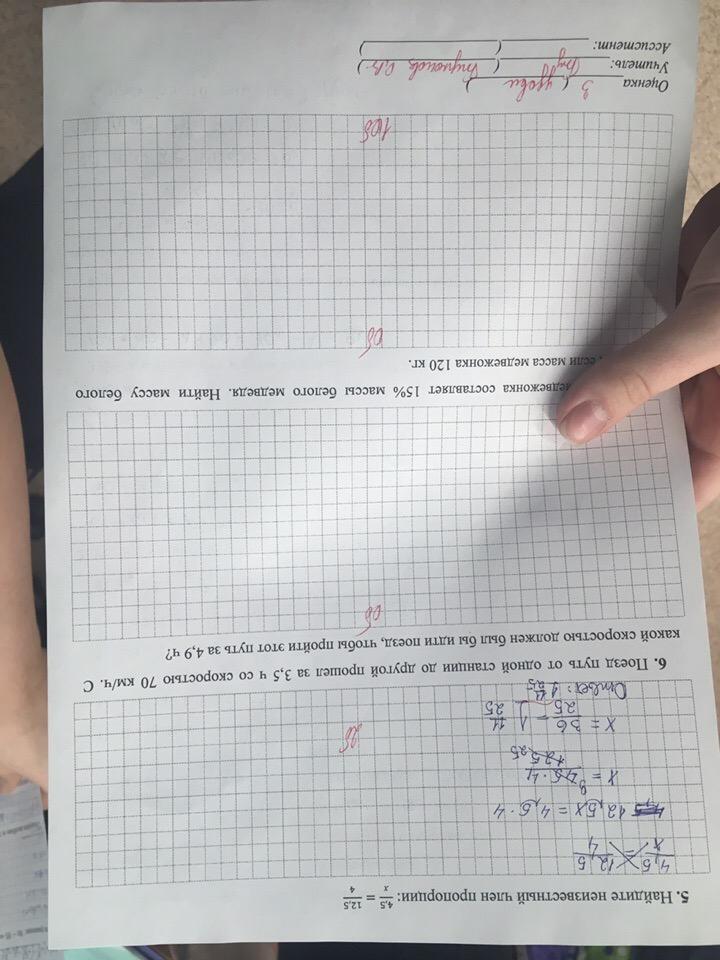 5. Найдите неизвестный член пропорции: 4,5/x = 12,5/4
4,5/x = 12,5/4
12,5x = 4,5 · 4
x = 45 · 4 / 125 25
9
x = 36/25 = 1 11/25
Ответ: 1 11/25
2б
6. Поезд путь от одной станции до другой прошел за 3,5 ч со скоростью 70 км/ч. С
какой скоростью должен был бы идти поезд, чтобы пройти этот путь за 4,9 ч?
0б
составляет 15% массы белого медведя. Найти массу белого
если масса медвежонка 120 кг.
0б
Оценка 3 ( )
Учитель: ( )
Ассистент: ( )